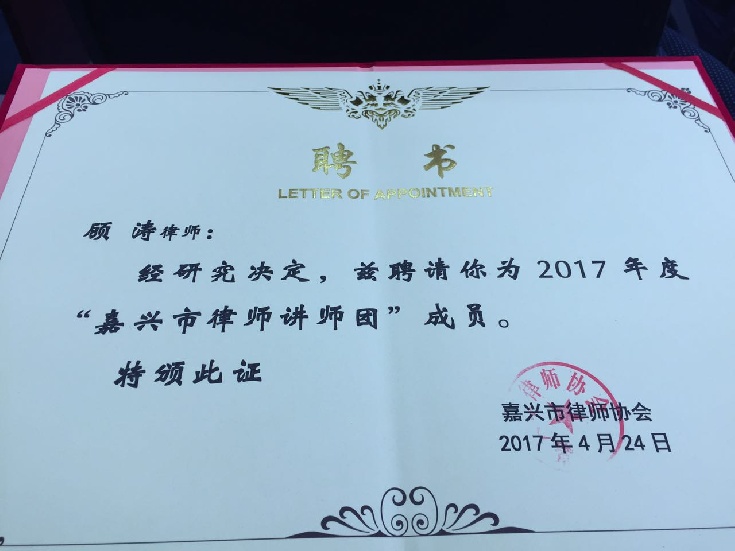 聘 书
LETTER OF APPOINTMENT
顾 涛律师：
经研究决定，兹聘请你为 2017 年度
“嘉兴市律师讲师团”成员。
特颁此证
律师协会
嘉兴市律师协会
2017 年 4 月 24 日